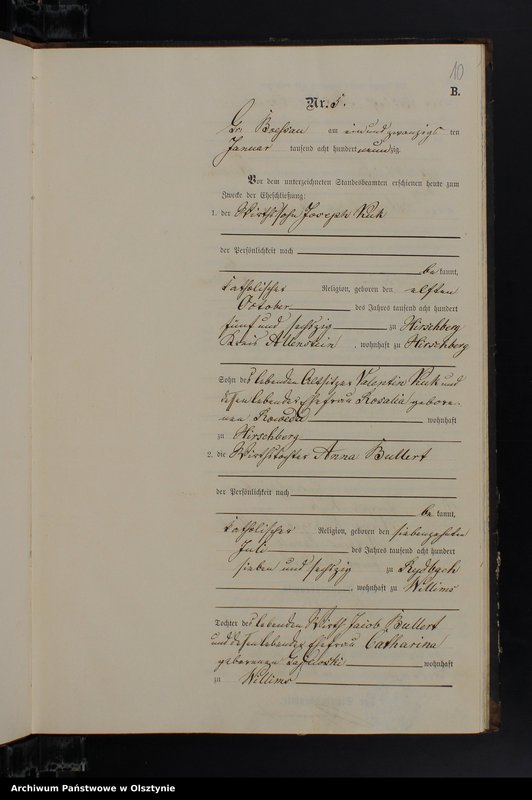 10
B.
Nr. 5.
Gr. Bressau am ein und zwanzigsten
Januar tausend acht hundert neunzig.
Vor dem unterzeichneten Standesbeamten erschienen heute zum
Zwecke der Eheschließung:
1. der Wirthssohn Joseph Kuk
der Persönlichkeit nach
be kannt,
katholischer Religion, geboren den elften
October des Jahres tausend acht hundert
fünf und sechszig zu Hirschberg
Kreis Allenstein, wohnhaft zu Hirschberg
Sohn des lebenden Altsitzer Valentin Kuk und
dessen lebender Ehefrau Rosalia gebore-
nen wohnhaft
zu Hirschberg
2. die Wirthstochter Anna Bullert
der Persönlichkeit nach
be kannt,
katholischer Religion, geboren den siebenzehnten
Juli des Jahres tausend acht hundert
sieben und sechszig zu Rydbach
, wohnhaft zu Willims
Tochter des lebenden Wirth Jacob Bullert
und dessen lebender Ehefrau Catharina
geborenen wohnhaft
zu Willims
Archiwum Państwowe w Olsztynie